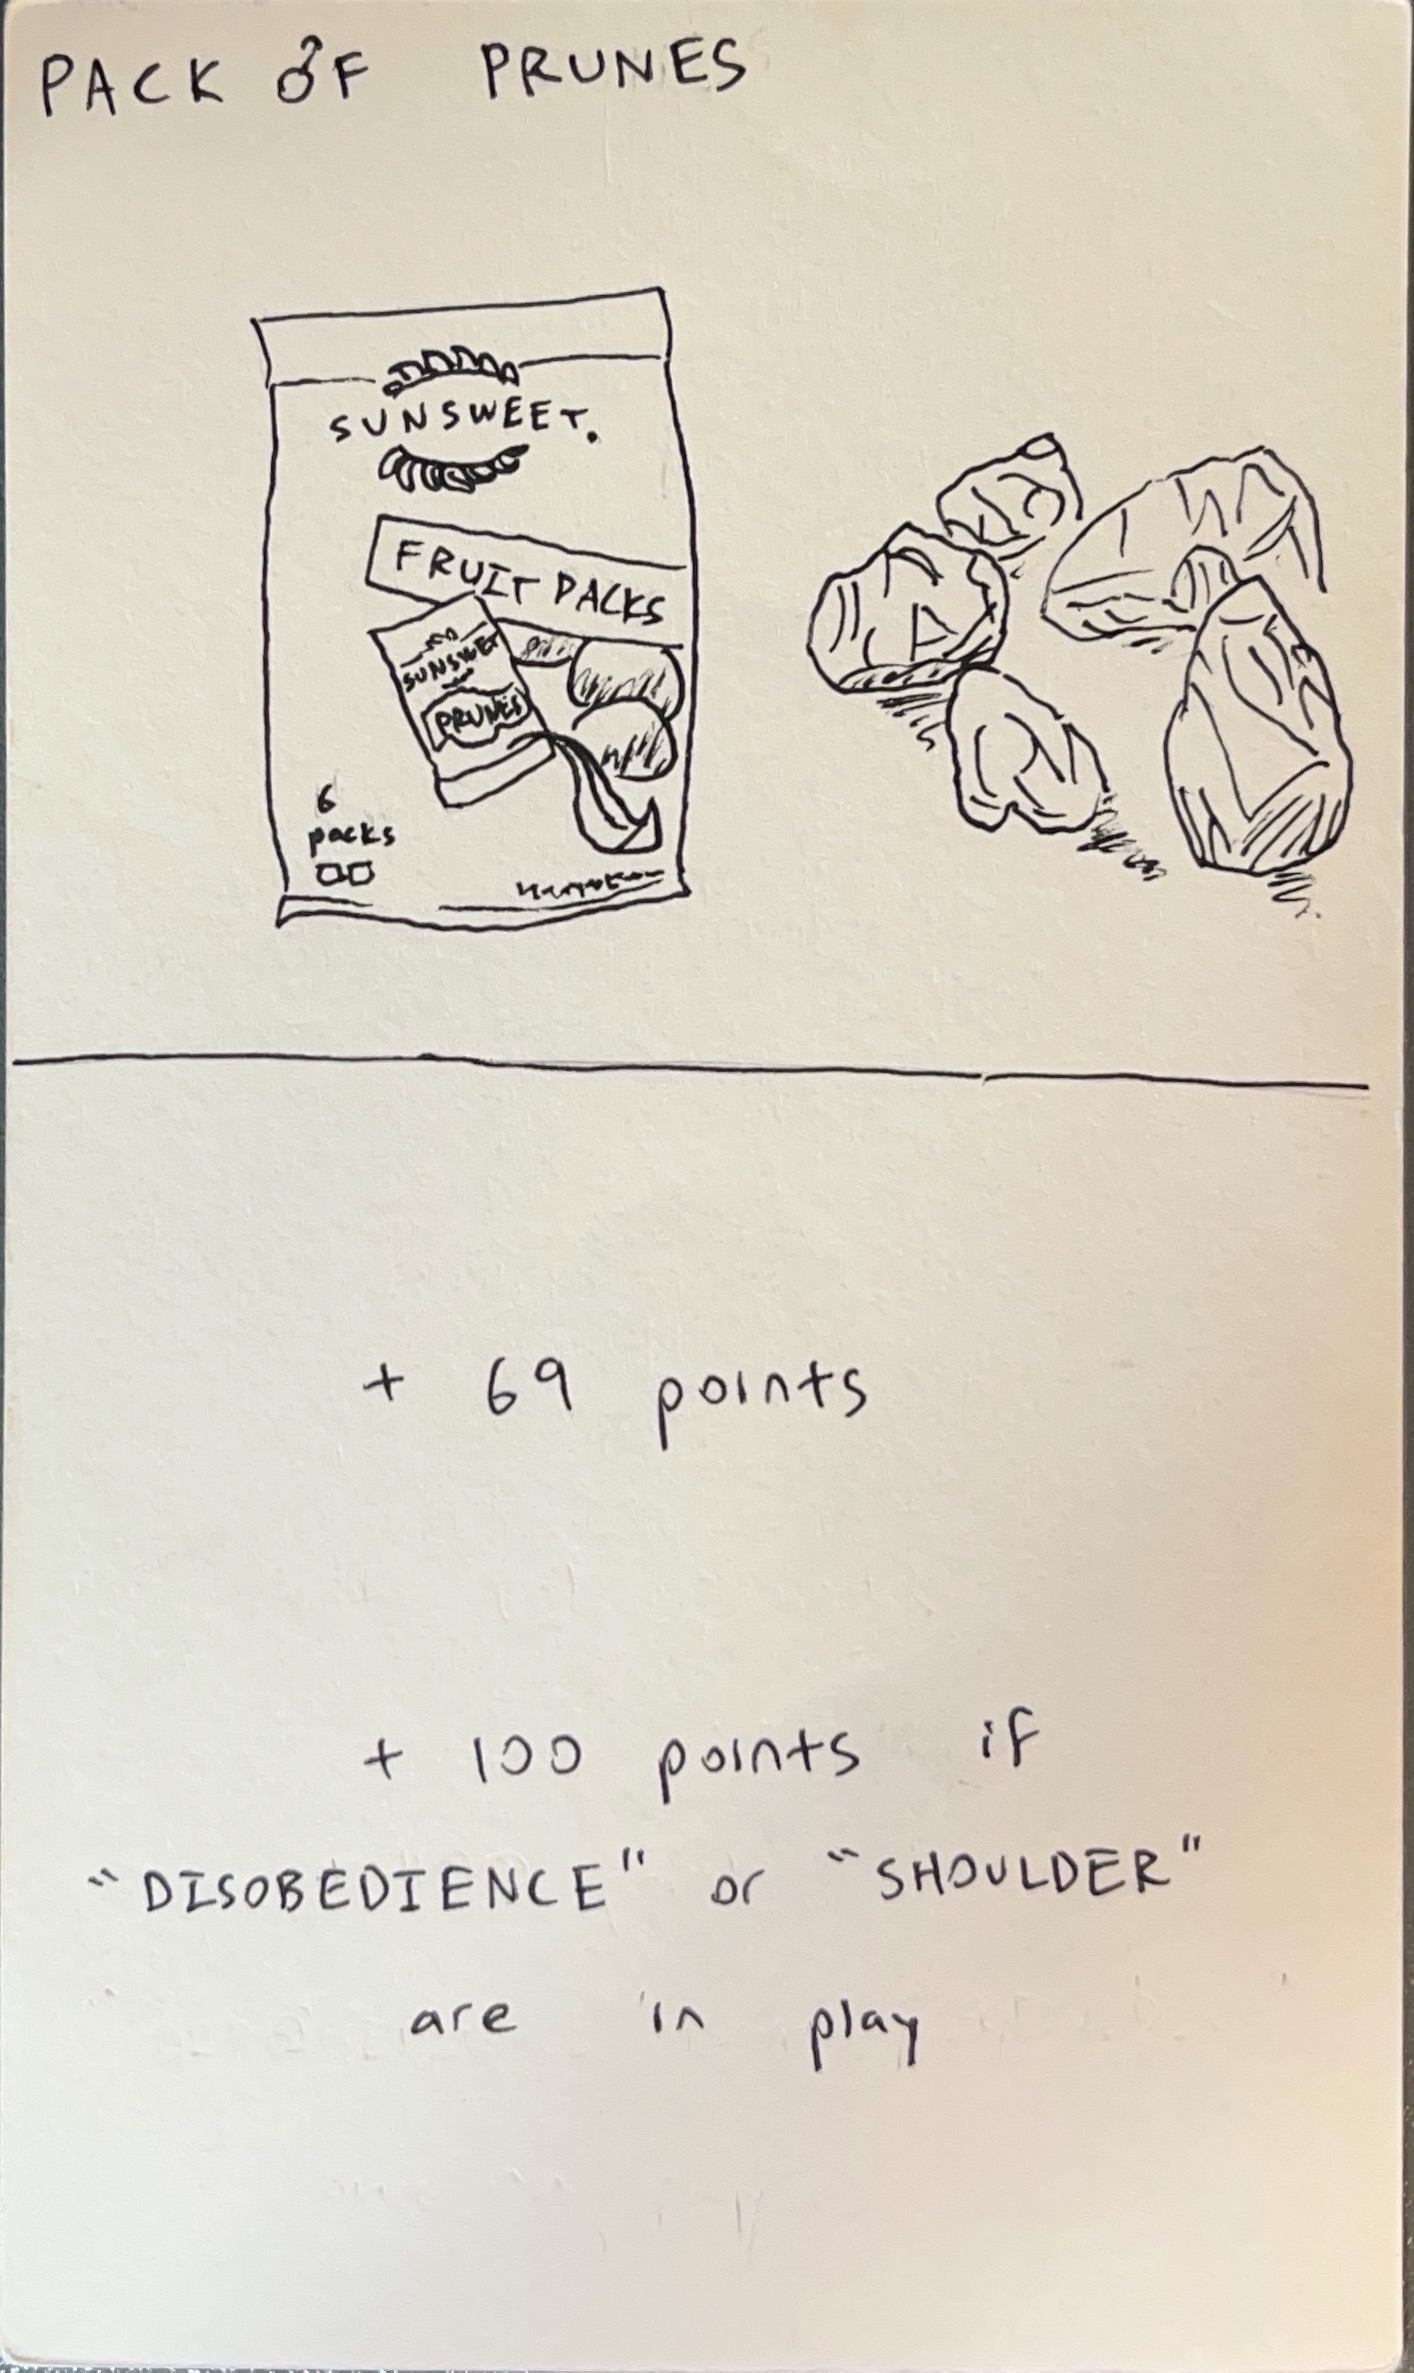 PACK OF PRUNES
SUNSWEET.
FRUIT PACKS
SUNSWEET
PRUNES
6
packs
+ 69 points
+ 100 points if
"DISOBEDIENCE" or "SHOULDER"
are in play